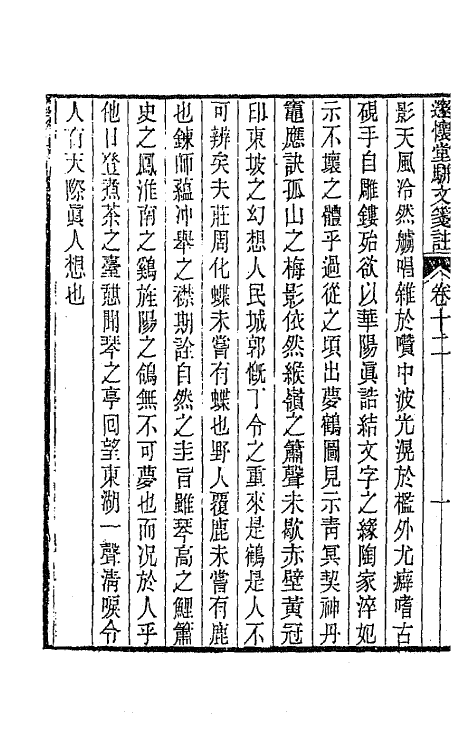 邃懷堂駢文箋註 卷十二 一
影天風冷然觴唱雜於嚽中波光滉於檻外尤癖嗜古
硯手自雕鏤殆欲以華陽眞誥結文字之緣陶家淬妃
示不壞之體乎過從之頃出夢鶴圖見示靑冥契神丹
竈應訣孤山之梅影依然緱嶺之簫聲未歇赤壁黃冠
印東坡之幻想人民城郭慨丁令之重來是鶴是人不
可辨矣夫莊周化蝶未嘗有蝶也野人覆鹿未嘗有鹿
也鍊師蘊冲舉之襟期詮自然之圭旨雖琴高之鯉簫
史之鳳淮南之鷄旌陽之鴿無不可夢也而况於人乎
他日登煮茶之臺憇聞琴之亭囘望東湖一聲淸唳令
人有天際眞人想也